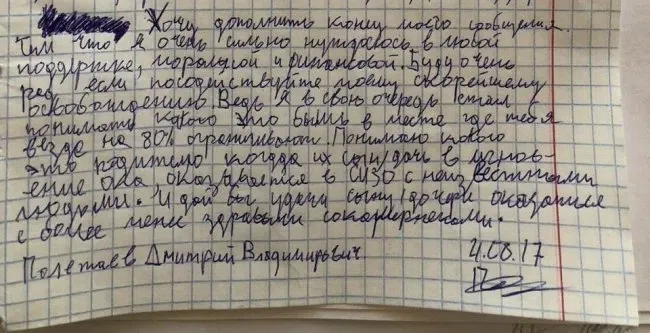 Хочу дополнить конец моего сообщения.
Тем что я очень сильно нуждаюсь в любой
поддержке, моральной и финансовой. Буду очень
рад если посодействуйте моему скорейшему
освобаждению. Ведь я в свою очередь стал
понимать какого это выть в месте где тебя
везде на 80% огратчивают. Понимаю какого
это родителю когда их сын/дочь в мгнов-
ение ока оказывается в СИЗО с неизвестными
людьми. И дай бог удачи сыну/дочери оказатся
с более менее здравыми сокамерниками.
Полетаев Дмитрий Владимирович
4.08.17